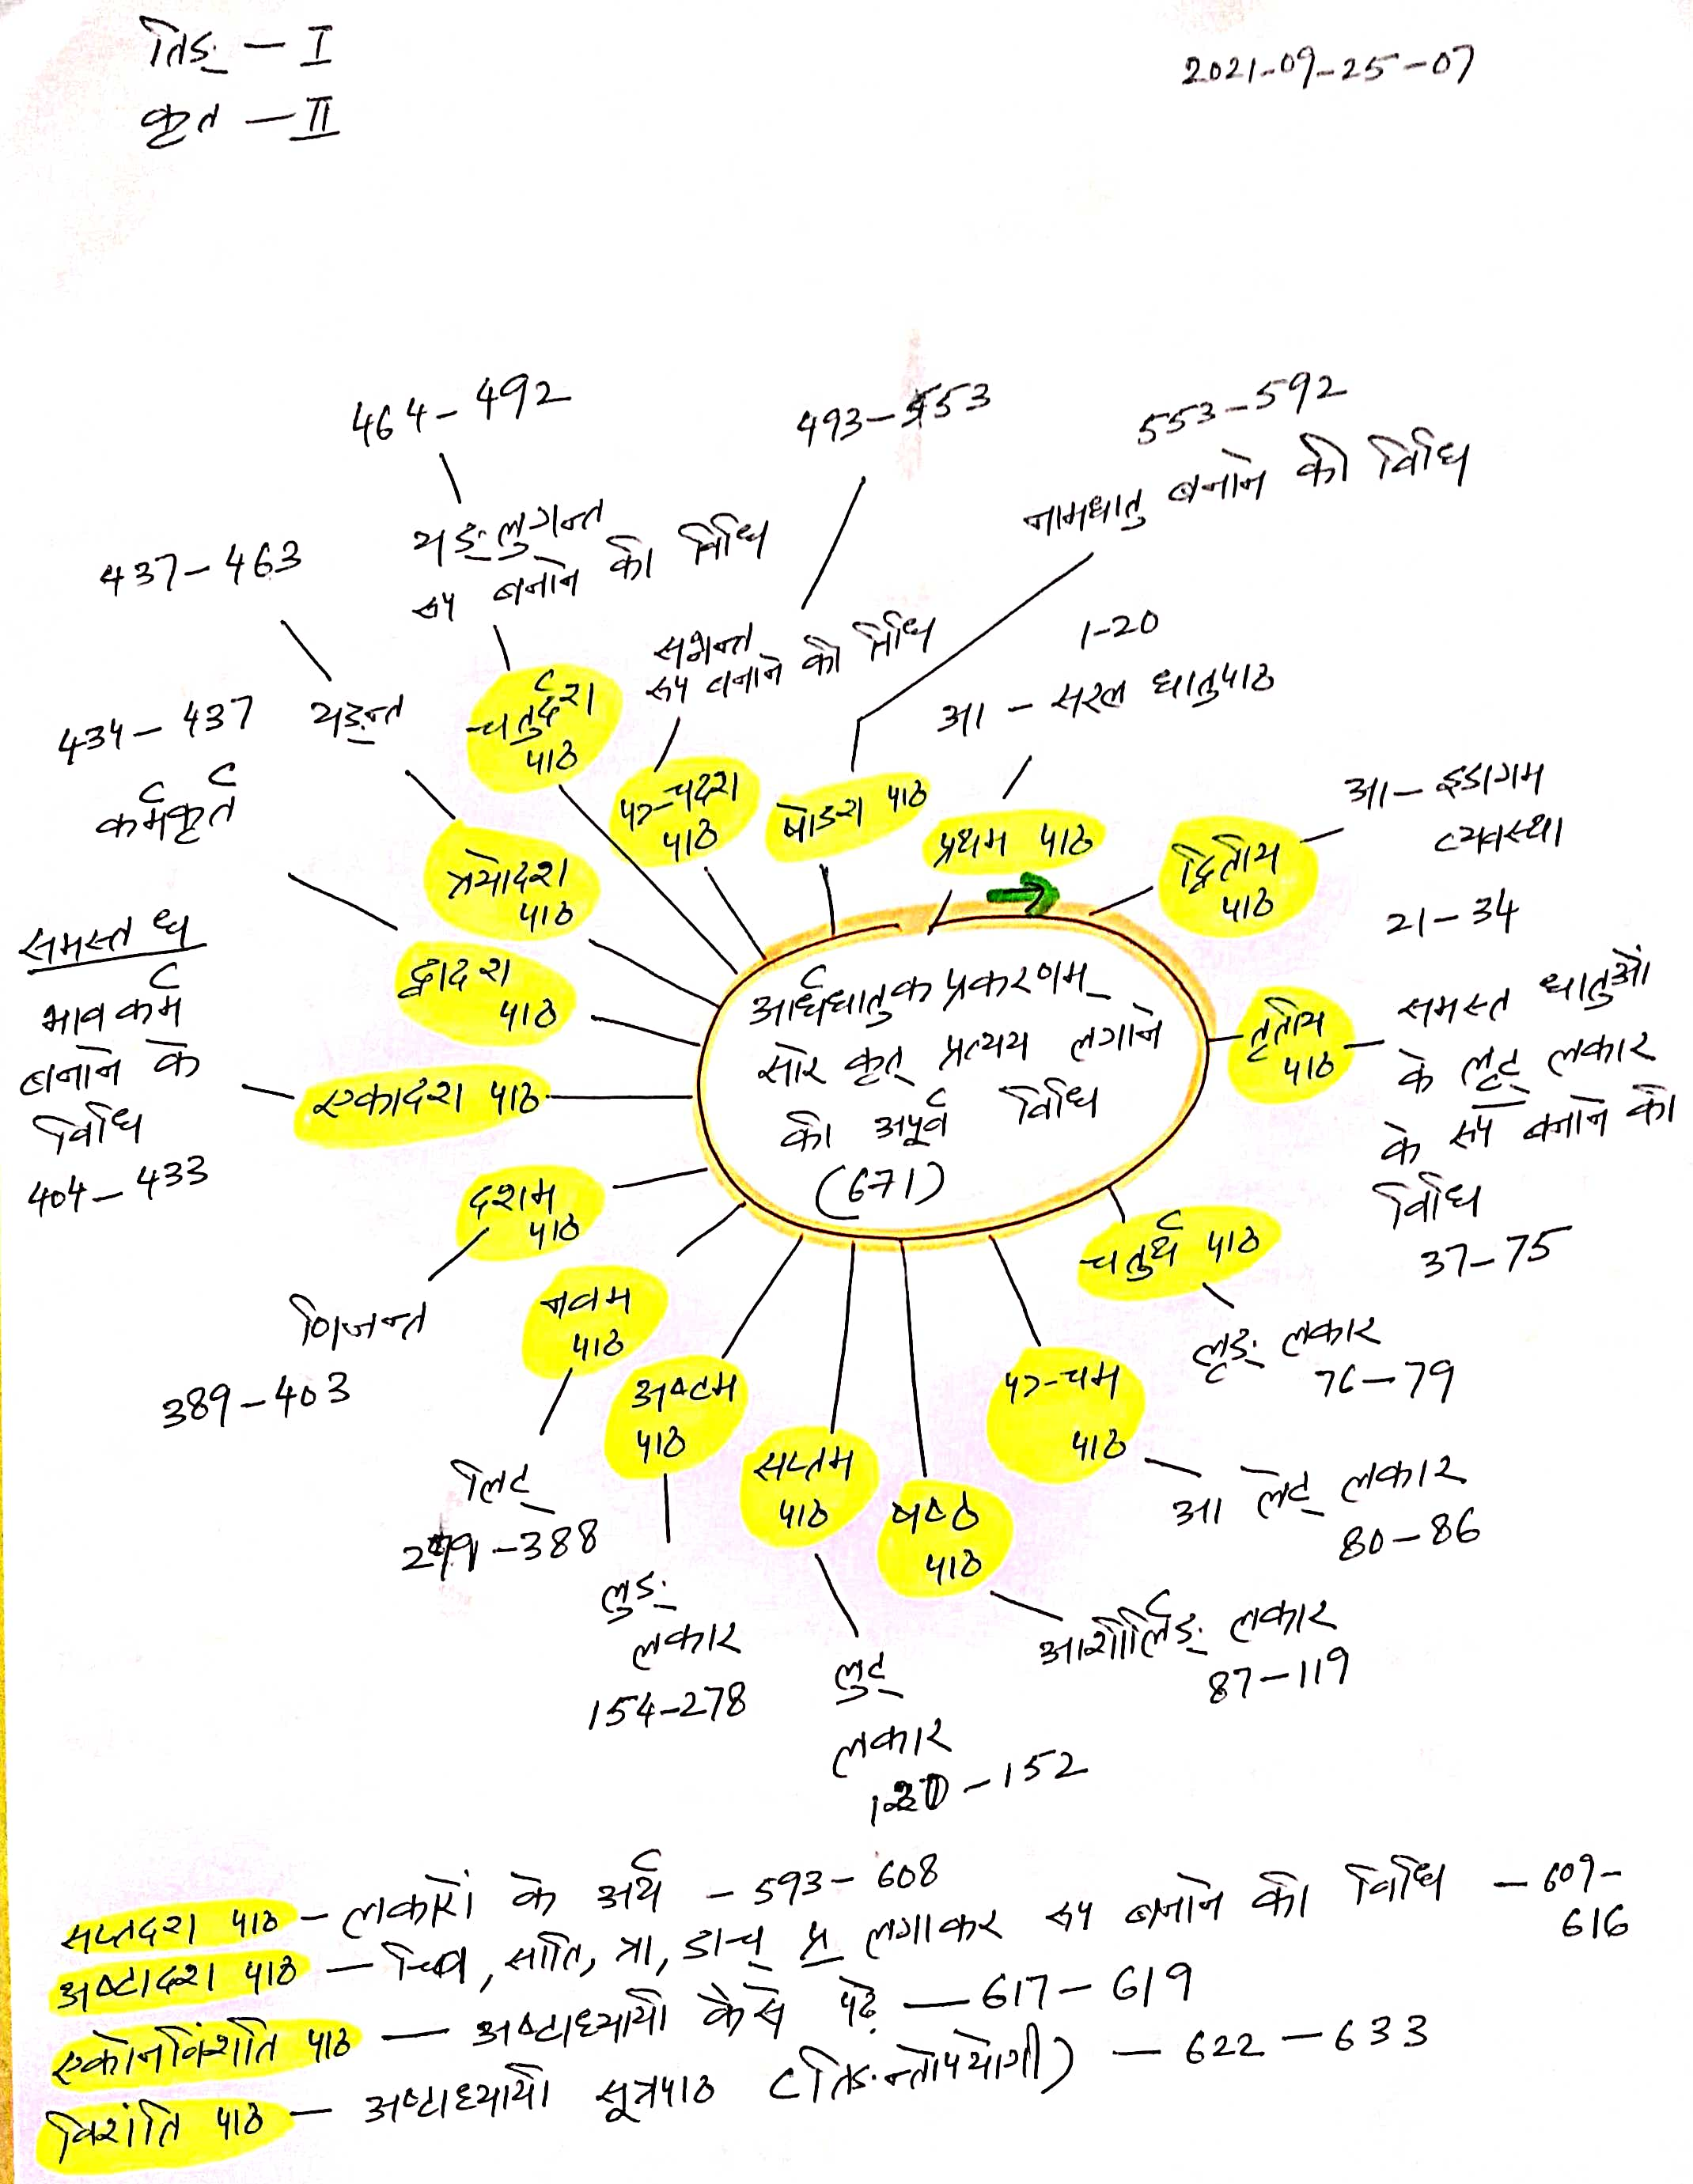 तिङ् - I
कृत - II
2021-09-25-07
464-492
493-553
553-592
नामधातु बनाने की विधि
437-463
यङ्लुगन्त
रूप बनाने की विधि
सन्नन्त
रूप बनाने की विधि
1-20
आ - सरल धातुपाठ
434-437
कर्मकर्तृ
यङन्त
चतुर्दश
पाठ
पञ्चदश
पाठ
षोडश पाठ
प्रथम पाठ
द्वितीय
पाठ
आ - इडागम
व्यवस्था
21-34
त्रयोदश
पाठ
द्वादश
पाठ
समस्त ध
भावकर्म
बनाने के
विधि
404-433
एकादश पाठ
आर्धधातुक प्रकरणम्
और कृत् प्रत्यय लगाने
की अपूर्व विधि
(671)
तृतीय
पाठ
समस्त धातुओं
के लृट् लकार
के रूप बनाने की
विधि
37-75
दशम
पाठ
णिजन्त
389-403
नवम
पाठ
लिट्
279-388
अष्टम
पाठ
लुङ्
लकार
154-278
सप्तम
पाठ
लुट्
लकार
120-152
षष्ठ
पाठ
आशीर्लिङ् लकार
87-119
पञ्चम
पाठ
आ लेट् लकार
80-86
चतुर्थ पाठ
लृङ् लकार
76-79
सप्तदश पाठ - लकारों के अर्थ - 593-608
अष्टादश पाठ - च्वि, साति, त्रा, डाच् प्र लगाकर रूप बनाने की विधि - 609-
616
एकोनविंशति पाठ - अष्टाध्यायी कैसे पढ़े - 617-619
विशंति पाठ - अष्टाध्यायी सूत्रपाठ (तिङन्तोपयोगी) - 622-633